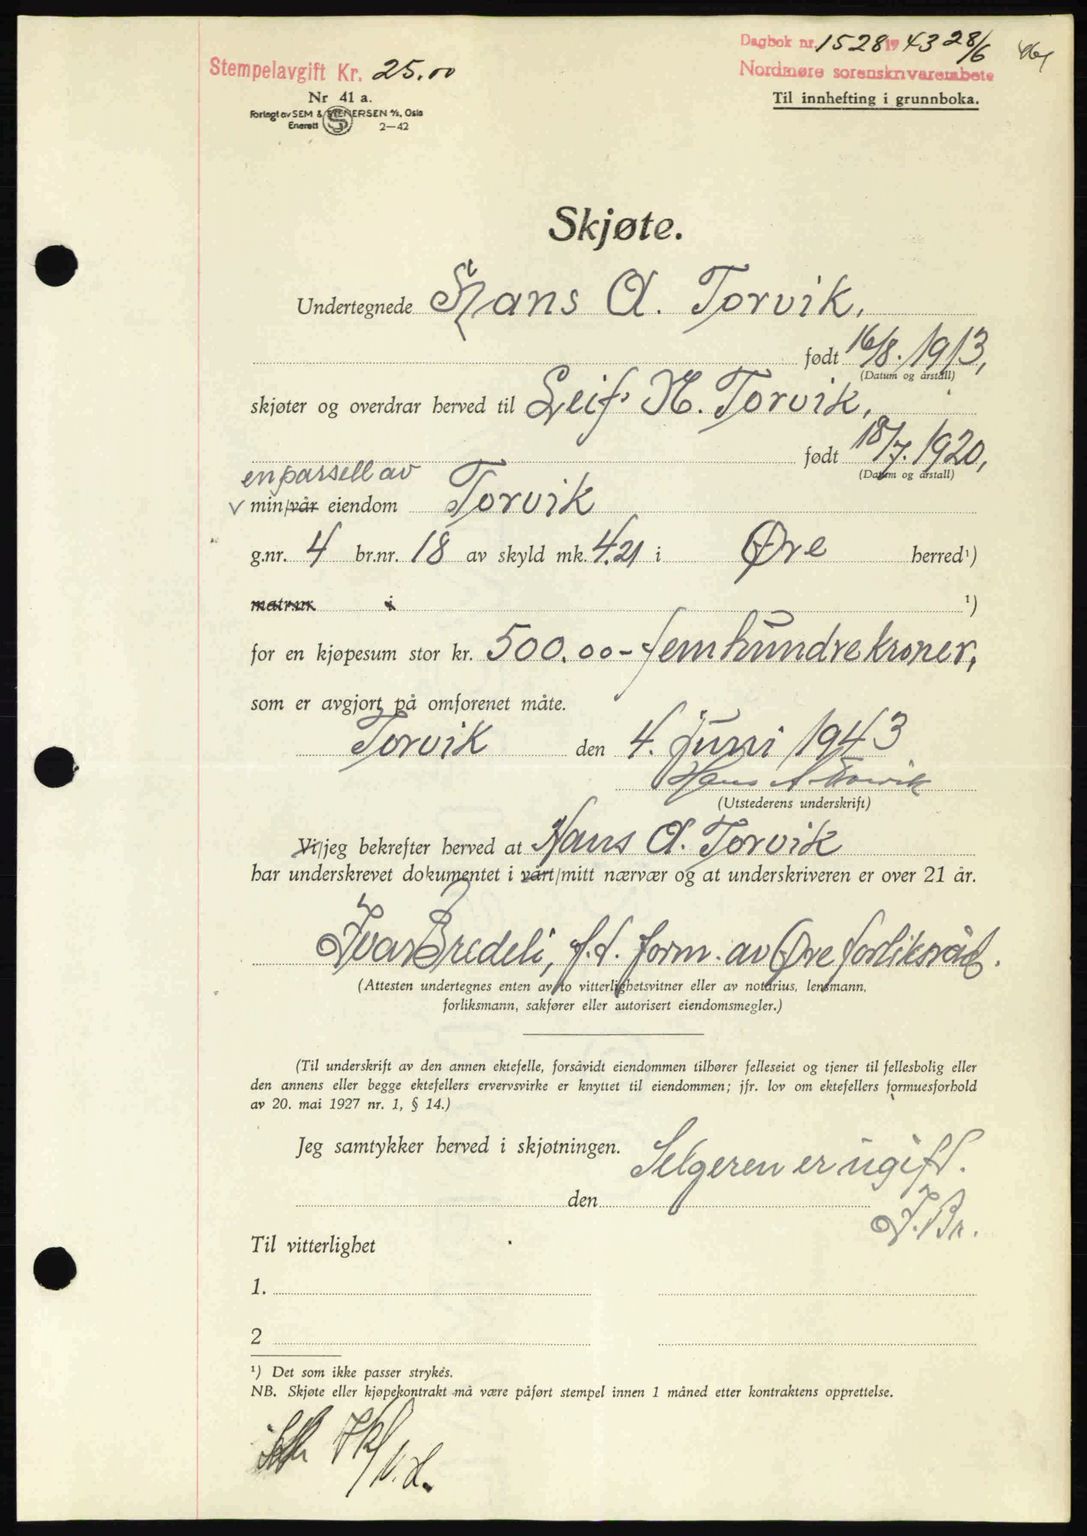 Dagbok nr. 1528 1943 28/6
Stempelavgift Kr. 25.00
Nordmøre sorenskriverembete
Nr 41 a.
Til innhefting i grunnboka.
Forlagt av SEM & STENERSEN A/S, Oslo
Enerett 2—42
Skjøte.
Undertegnede Hans A. Torvik,
født 16/8. 1913,
(Datum og årstall)
skjøter og overdrar herved til Leif H. Torvik,
født 18/7. 1920,
(Datum og årstall)
en parsell av
✓ min/vår eiendom Torvik
g.nr. 4 br.nr. 18 av skyld mk. 4.21 i Øre herred¹)
matrnr. i ¹)
for en kjøpesum stor kr. 500.00 - femhundrekroner,
som er avgjort på omforenet måte.
Torvik den 4. juni 1943
Hans A. Torvik
(Utstederens underskrift)
Vi/jeg bekrefter herved at Hans A. Torvik
har underskrevet dokumentet i vårt/mitt nærvær og at underskriveren er over 21 år.
Ivar Bredeli, f.t. form. av Øre forliksråd.
(Attesten undertegnes enten av to vitterlighetsvitner eller av notarius, lensmann,
forliksmann, sakfører eller autorisert eiendomsmegler.)
(Til underskrift av den annen ektefelle, forsåvidt eiendommen tilhører felleseiet og tjener til fellesbolig eller
den annens eller begge ektefellers ervervsvirke er knyttet til eiendommen; jfr. lov om ektefellers formuesforhold
av 20. mai 1927 nr. 1, § 14.)
Jeg samtykker herved i skjøtningen. Selgeren er ugift.
den
I. Br.
Til vitterlighet
1.
2
¹) Det som ikke passer strykes.
NB. Skjøte eller kjøpekontrakt må være påført stempel innen 1 måned etter kontraktens opprettelse.